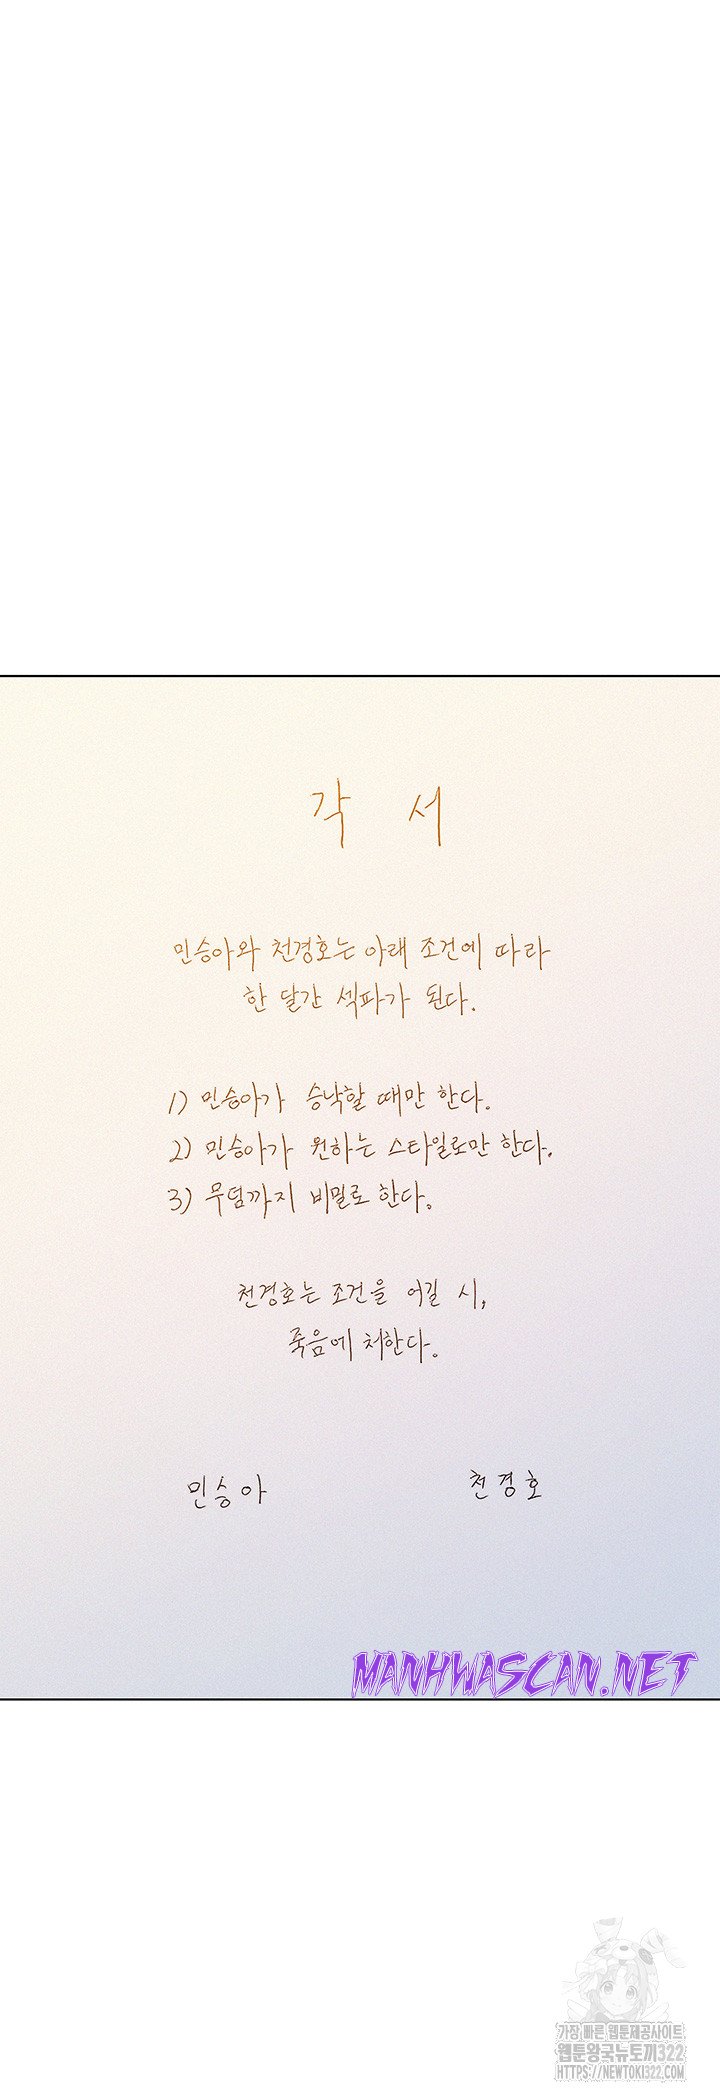 각 서
민승아와 천경호는 아래 조건에 따라
한 달간 섹파가 된다.
1) 민승아가 승낙할 때만 한다.
2) 민승아가 원하는 스타일로만 한다.
3) 무덤까지 비밀로 한다.
천경호는 조건을 어길 시,
죽음에 처한다.
민승아 천경호
MANHWASCAN.NET
가장 빠른 웹툰제공사이트
웹툰왕국뉴토끼322
HTTPS://NEWTOKI322.COM